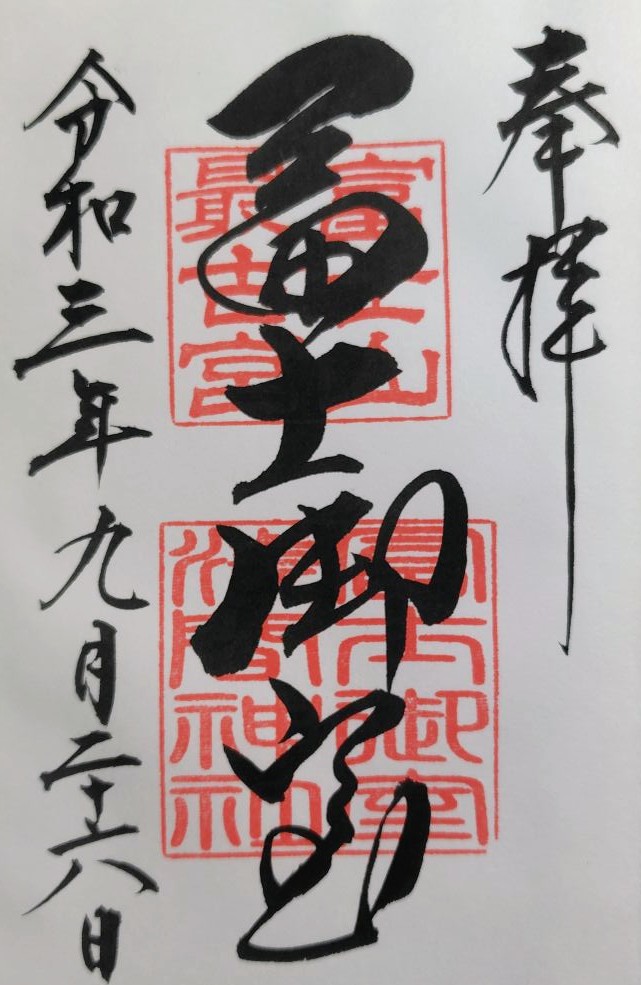 奉拝
冨士御室
富士山
最古宮
冨士御室
淺間神社
令和三年九月二十六日